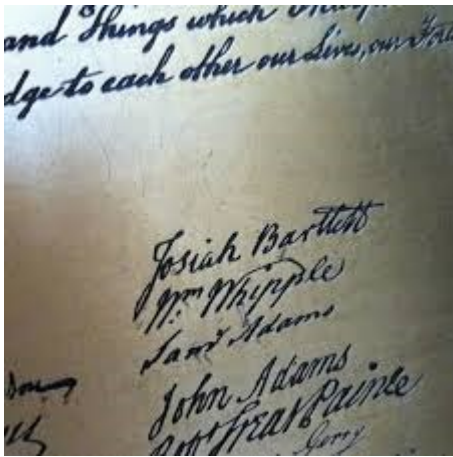 and Things which
dge to each other our Lives, our
Josiah Bartlett
Wm Whipple
Saml Adams
John Adams
Robt Treat Paine
Gerry